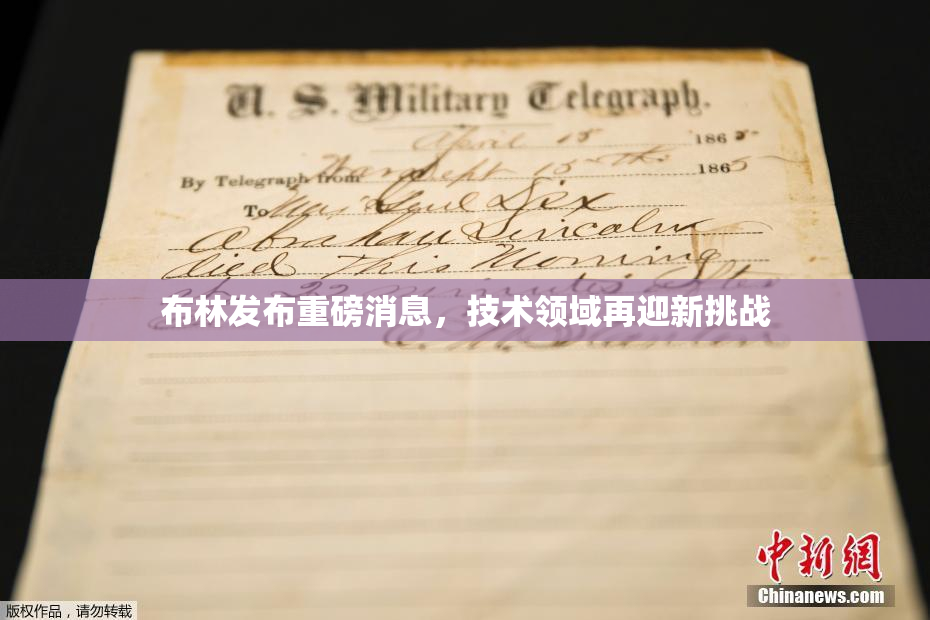 U. S. Military Telegraph.
April 15 1865
By Telegraph from War Dept 15th 1865
To Maj Genl Dix
Abraham Lincoln
died This Morning
at 22 minutes after
布林发布重磅消息，技术领域再迎新挑战
E. M. Stanton
中新网
Chinanews.com
版权作品，请勿转载